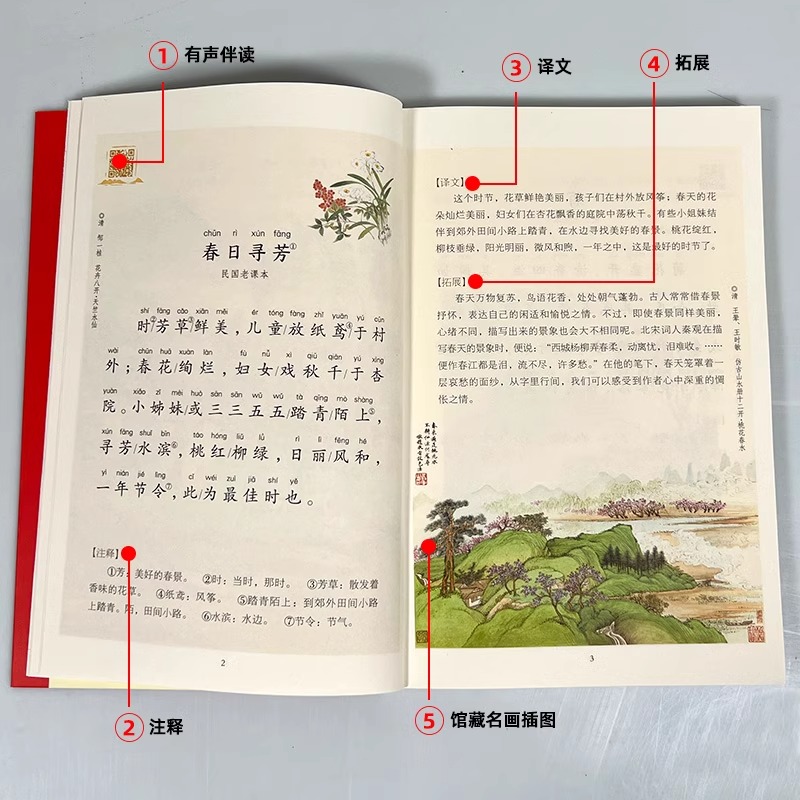 ① 有声伴读
③ 译文
④ 拓展
chūn rì xún fāng
春日寻芳①
民国老课本
shí fāng cǎo xiān měi ér tóng fàng zhǐ yuān yú cūn
时②芳草③鲜美，儿童/放纸鸢④于村
wài chūn huā xuàn làn fù nǚ xì qiū qiān yú xìng
外；春花/绚烂，妇女/戏秋千/于杏
yuàn xiǎo zǐ mèi huò sān sān wǔ wǔ tà qīng mò shàng
院。小姊妹/或三三五五/踏青/陌上⑤，
xún fāng shuǐ bīn táo hóng liǔ lǜ rì lì fēng hé
寻芳/水滨⑥，桃红/柳绿，日丽/风和，
yì nián jié lìng cǐ wéi zuì jiā shí yě
一年节令⑦，此/为最佳时也。
【注释】
①芳：美好的春景。 ②时：当时，那时。 ③芳草：散发着
香味的花草。 ④纸鸢：风筝。 ⑤踏青陌上：到郊外田间小路
上踏青。陌，田间小路。 ⑥水滨：水边。 ⑦节令：节气。
2
◎清 邹一桂 花卉八开·天竺水仙
【译文】
这个时节，花草鲜艳美丽，孩子们在村外放风筝；春天的花
朵灿烂美丽，妇女们在杏花飘香的庭院中荡秋千。有些小姐妹结
伴到郊外田间小路上踏青，在水边寻找美好的春景。桃花绽红，
柳枝垂绿，阳光明丽，微风和煦，一年之中，这是最好的时节了。
【拓展】
春天万物复苏，鸟语花香，处处朝气蓬勃。古人常常借春景
抒怀，表达自己的闲适和愉悦之情。不过，即使春景同样美丽，
心绪不同，描写出来的景象也会大不相同呢。北宋词人秦观在描
写春天的景象时，便说：“西城杨柳弄春柔，动离忧，泪难收。……
便作春江都是泪，流不尽，许多愁。”在他的笔下，春天笼罩着一
层哀愁的面纱，从字里行间，我们可以感受到作者心中深重的惆
怅之情。
◎清 王翚、王时敏 仿古山水册十二开·桃花春水
3
② 注释
⑤ 馆藏名画插图